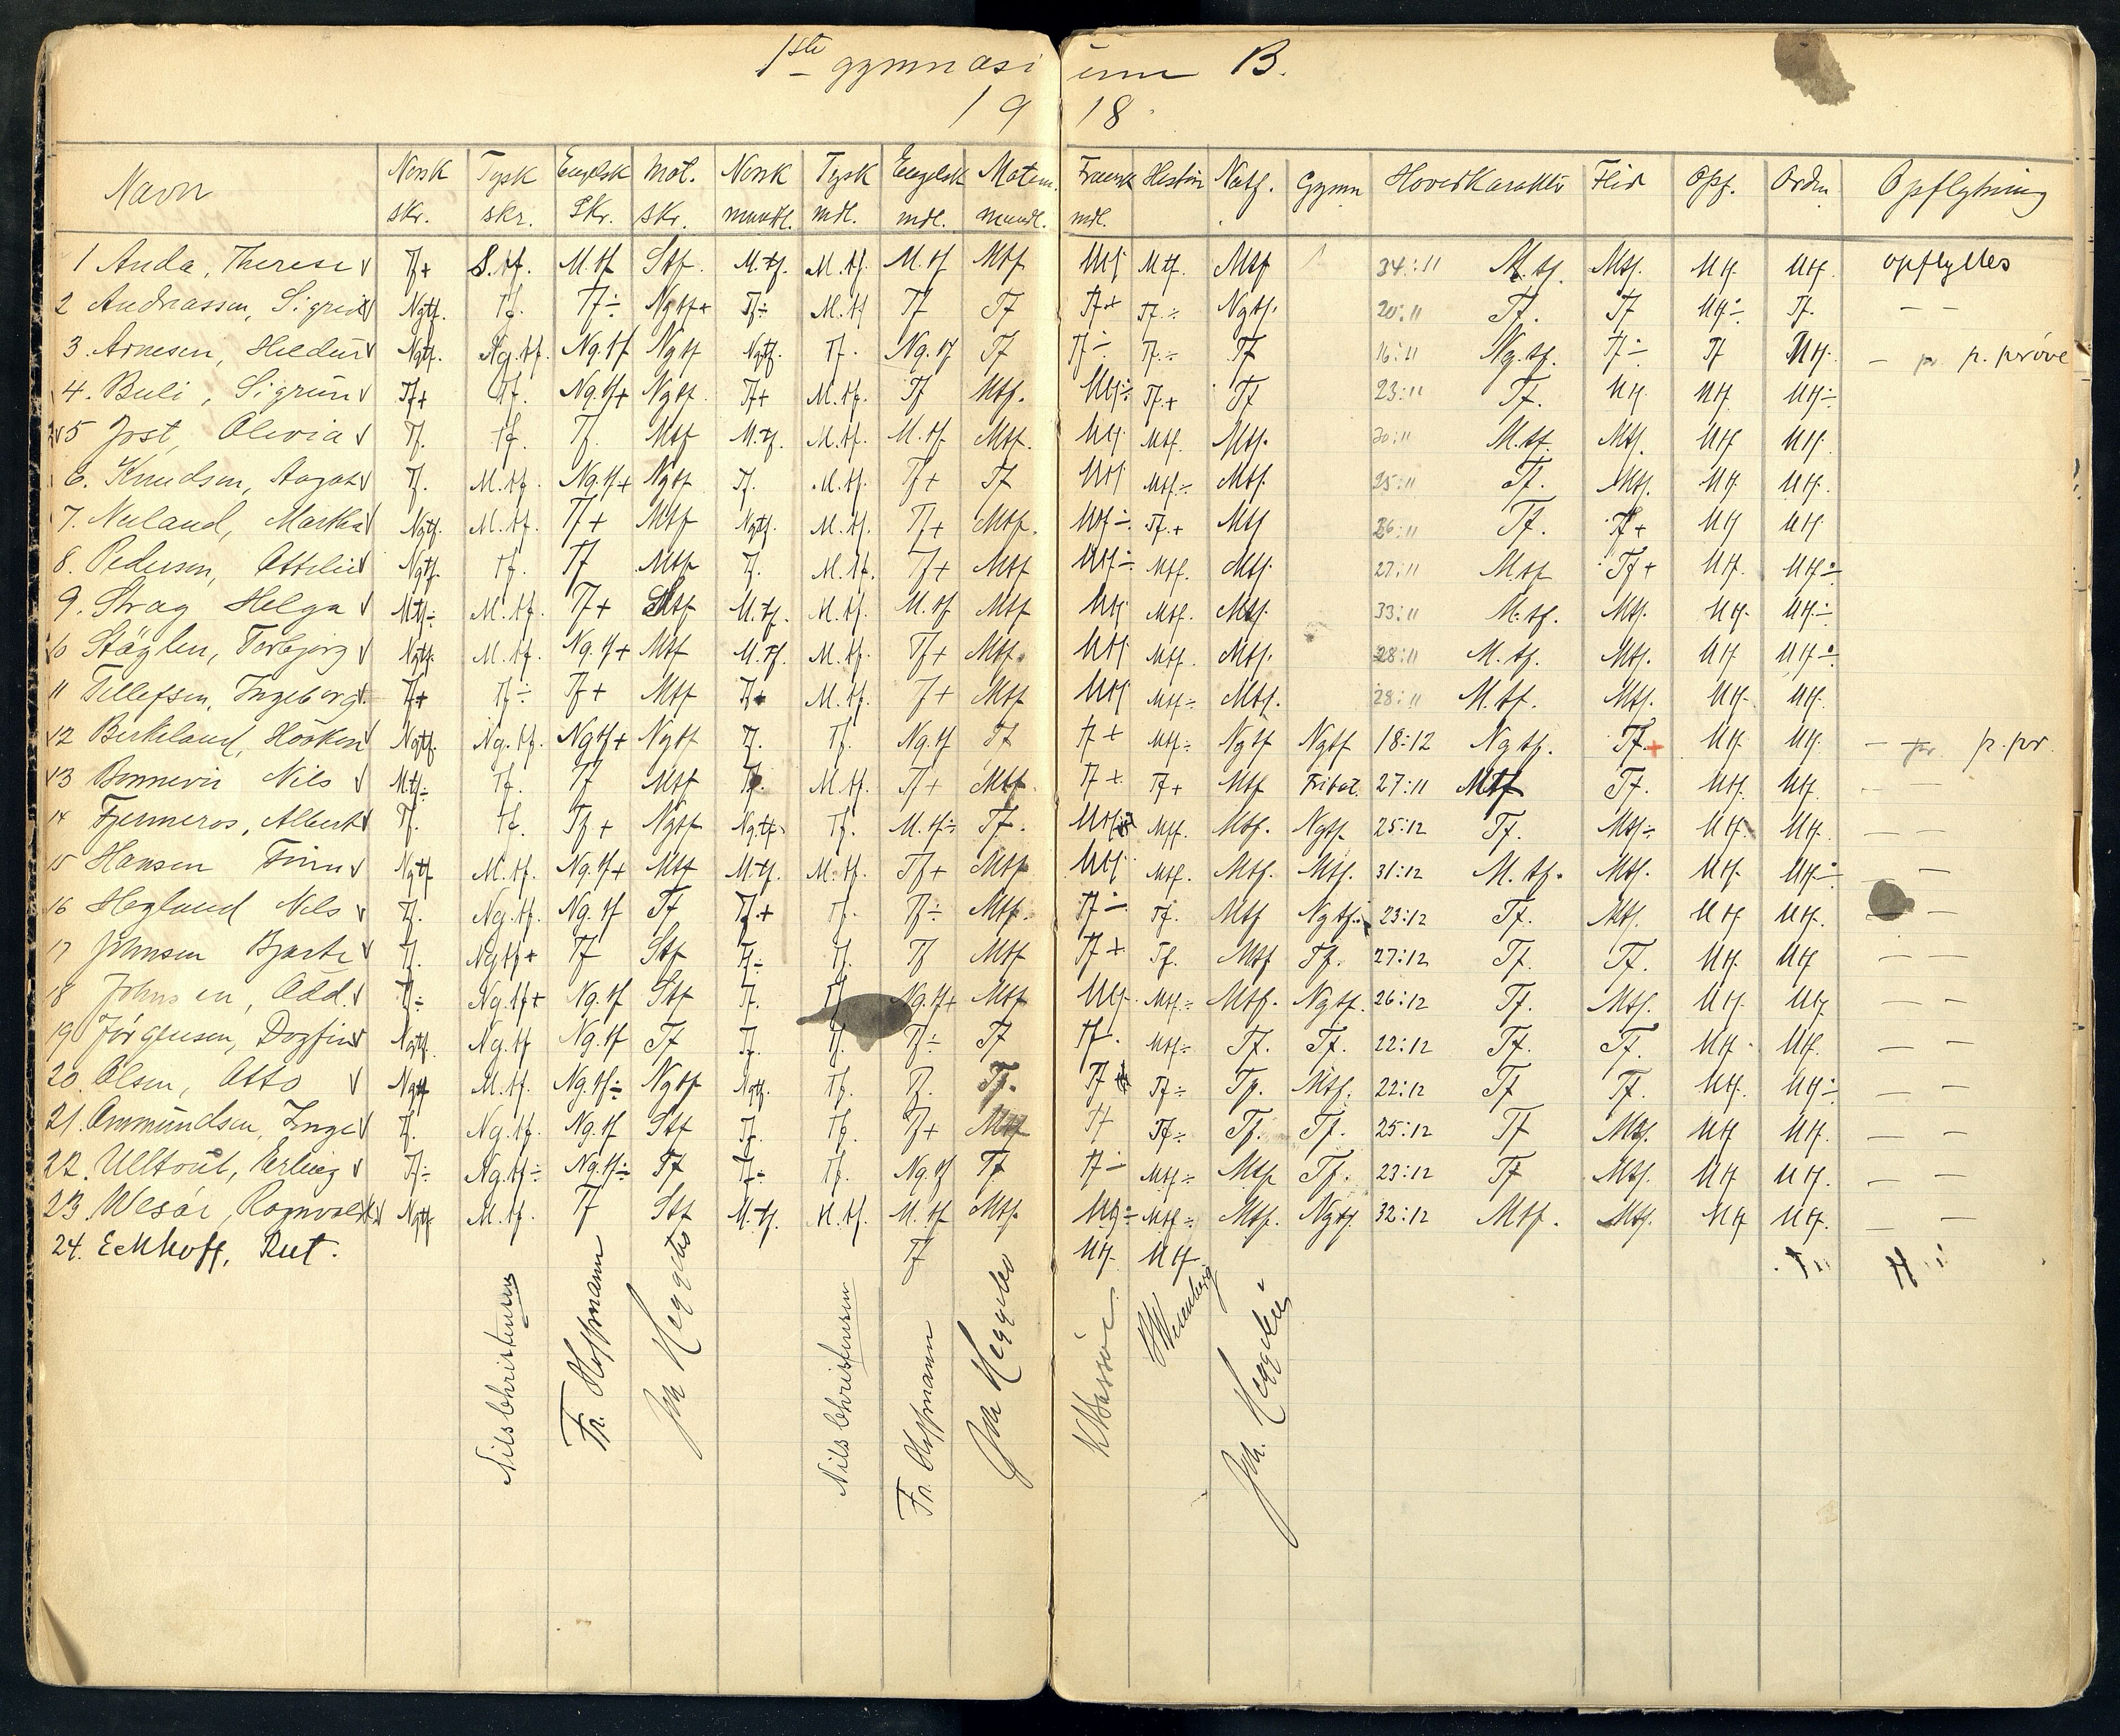 1ste gymnasium B.
1918
Navn Norsk skr. Tysk skr. Engelsk Skr. Mat. skr. Norsk mundtl. Tysk mdl. Engelsk mdl. Matem. mundl. Fransk mdl. Historie Natf. Gymn Hovedkarakter Flid Opf. Orden Opflytning
1 Anda, Therese v Tf+ S.tf. M.tf Stf. M.tf. M.tf. M.tf Mtf Mtf Mtf. Mtf 34:11 M.tf. Mtf. Mtf. Mtf. opflyttes
2 Andreassen, Sigrid v Ngtf. Tf. Tf÷ Ngtf+ Tf÷ M.tf Tf Tf Tf+ Tf.÷ Ngtf. 20:11 Tf. Tf Mtf÷ Tf. — —
3. Arnesen, Heldur v Ngtf. Ng.tf. Ng.tf Ngtf Ngtf. Tf. Ng.tf Tf Tf÷ Tf.÷ Tf 16:11 Ng.tf. Tf÷ Tf Mtf. — pr. p. prøve
4. Buli, Sigrun v Tf+ Tf. Ng.tf+ Ngtf. Tf+ M.tf. Tf Mtf. Mtf÷ Tf.+ Tf 23:11 Tf. Mtf. Mtf. Mtf÷
5 Jost, Olivia v Tf. tf. Tf. Mtf M.tf. M.tf. M.tf. Mtf. Mtf. Mtf. Mtf. 30:11 M.tf. Mtf. Mtf Mtf.
6. Knudsen, Aagot v Tf. M.tf. Ng.tf+ Ngtf Tf. M.tf. Tf+ Tf Mtf Mtf.÷ Mtf. 25:11 Tf. Mtf. Mtf. Mtf.
7. Nuland, Martha v Ngtf. M.tf. Tf+ Mtf Ngtf. M.tf. Tf+ Mtf. Mtf÷ Tf.+ Mtf 26:11 Tf. Tf+ Mtf Mtf
8. Pedersen, Ottilie v Ngtf. Tf. Tf Mtf Tf. M.tf. Tf+ Mtf Mtf÷ Mtf. Mtf. 27:11 Mtf Tf+ Mtf. Mtf÷
9. Strag Helga v Mtf÷ M.tf. Tf+ Mtf M.tf. M.tf. M.tf Mtf Mtf. Mtf. Mtf. 33:11 M.tf. Mtf. Mtf. Mtf÷
10 Stäglen, Torbjorg v Ngtf. M.tf. Ng.tf+ Mtf M.tf. M.tf. Tf+ Mtf. Mtf Mtf. Mtf. 28:11 M.tf. Mtf. Mtf Mtf÷
11 Tellefsen, Ingeborg. Tf+ Tf÷ Tf+ Mtf Tf+ M.tf. Tf+ Mtf Mtf Mtf÷ Mtf. 28:11 M.tf. Mtf. Mtf. Mtf.
12 Birkeland, Håkon v Ngtf. Ng.tf. Ngtf+ Ngtf Tf. Tf. Ng.tf Tf Tf+ Mtf÷ Ngtf Ngtf 18:12 Ngtf. Tf.+ Mtf. Mtf. — pr p.pr.
13 Bonnevie Nils v Mtf÷ Tf. Tf Mtf Tf. M.tf. Tf+ Mtf Tf+ Tf+ Mtf Fritat. 27:11 Mtf Tf. Mtf. Mtf. — —
14 Fjermeros, Albert v Tf. Tf. Tf+ Ngtf Ng.tf. Tf. M.tf÷ Tf. Mtf÷ Mtf. Mtf. Ngtf. 25:12 Tf. Mtf÷ Mtf. Mtf. — —
15 Hansen Finn v Ngtf M.tf. Ng.tf+ Mtf M.tf. M.tf. Tf+ Mtf Mtf. Mtf. Mtf. Mtf. 31:12 M.tf. Mtf. Mtf. Mtf÷ — —
16 Hegland Nils v Tf. Ng.tf. Ng.tf Tf Tf+ Tf. Tf÷ Mtf. Tf÷ Tf. Mtf Ngtf. 23:12 Tf. Mtf. Mtf. Mtf. — —
17 Johnsen Bjarte v Tf. Ngtf+ Tf Stf Tf÷ Tf. Tf Mtf Tf+ Tf. Mtf Tf. 27:12 Tf. Tf. Mtf. Mtf — —
18 Johnsen, Odd. v Tf÷ Ng.tf+ Ng.tf Stf Tf. Tf Ng.tf+ Mtf Mtf. Mtf.÷ Mtf. Ngtf. 26:12 Tf. Mtf. Mtf. Mtf — —
19 Jörgensen, Dagfin v Ngtf. Ng.tf Ng.tf Tf Tf. Tf. Tf÷ Tf Tf. Mtf÷ Tf. Tf. 22:12 Tf. Tf. Mtf. Mtf. — —
20. Olsen, Otto v Ngtf M.tf. Ng.tf÷ Ngtf Ngtf. Tf. Tf. Tf. Tf Tf÷ Tf. Mtf. 22:12 Tf Tf. Mtf. Mtf÷ — —
21. Ommundsen, Inge v Tf. Ng.tf. Ng.tf Stf Tf. Tf. Tf+ Mtf Tf Tf÷ Tf. Tf. 25:12 Tf Mtf. Mtf Mtf. — —
22. Ulltoul, Erling v Tf÷ Ng.tf÷ Ng.tf÷ Tf Tf÷ Tf. Ng.tf Tf Tf÷ Mtf÷ Mtf Tf. 23:12 Tf Mtf. Mtf Mtf. — —
23. Wesöe, Ragnvald v Ngtf M.tf. Tf Stf M.tf. M.tf. M.tf Mtf. Mtf÷ Mtf÷ Mtf. Ngtf. 32:12 Mtf. Mtf. Mtf Mtf. — —
24. Eckhoff, Rut. Tf Mtf. Mtf.
Nils Christensen
Fr. Hoffmann
Joh Heggelie
Nils Christensen
Fr. Hoffmann
Joh Heggelie
Joh. Heggelie